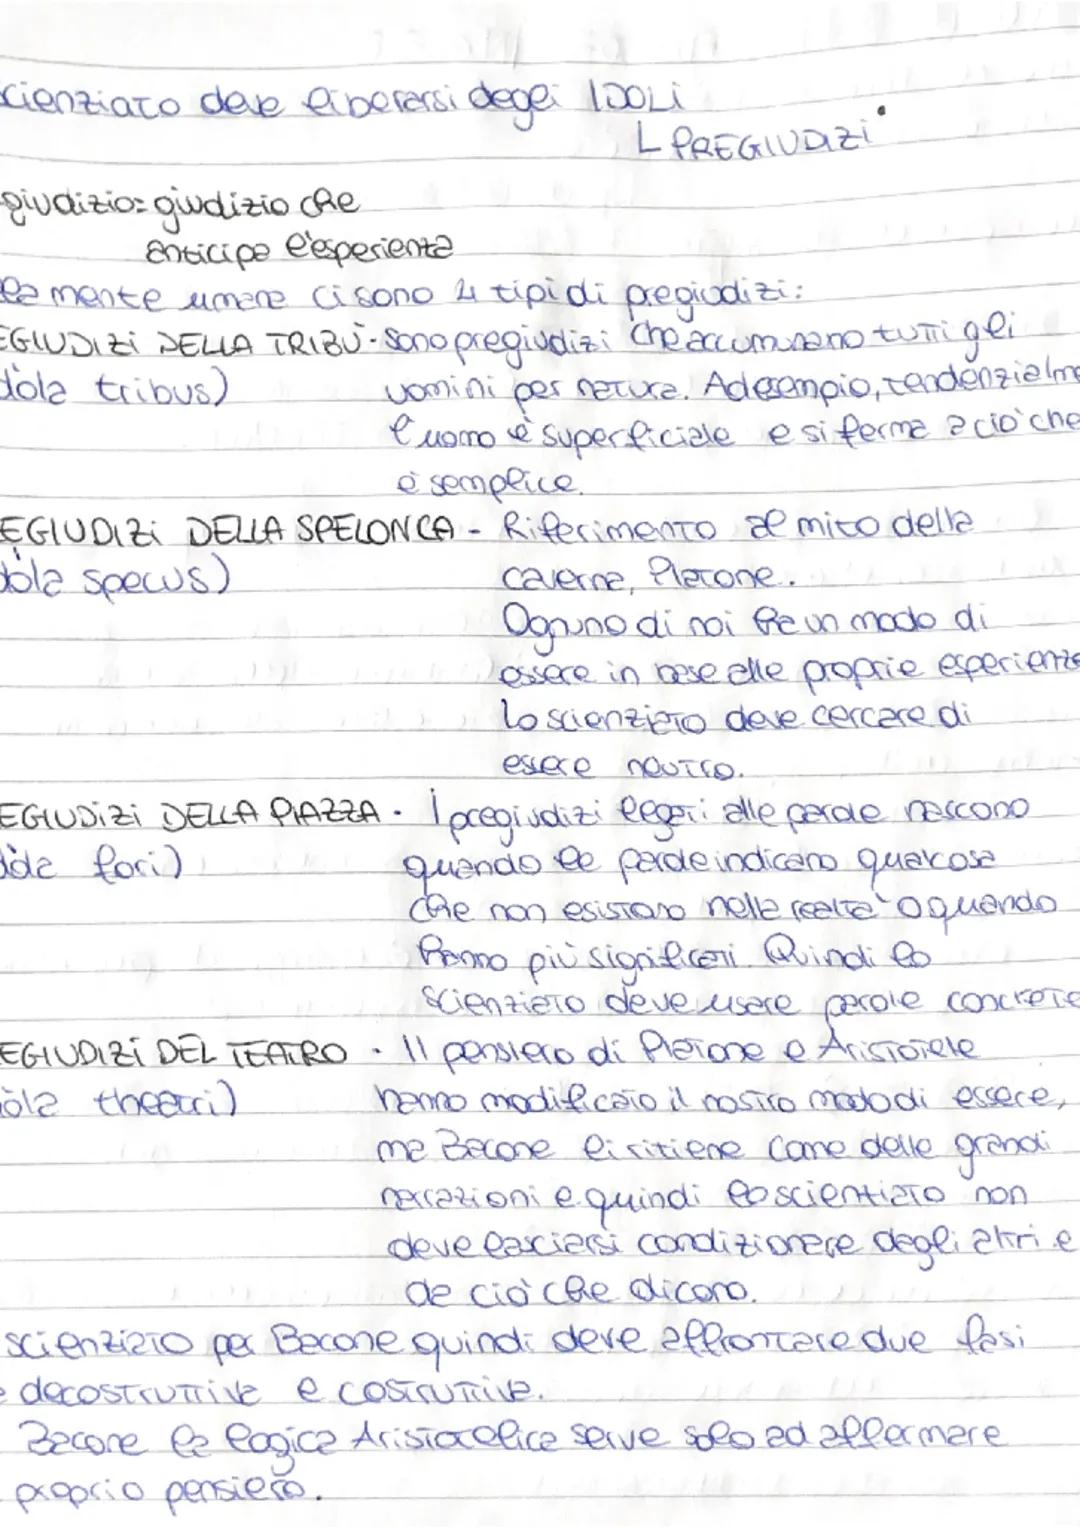 cienziato deve liberarsi degli IDOLi
L PREGIUDIZi
giudizio= giudizio che
anticipa l'esperienza
la mente umana ci sono 4 tipi di pregiudizi:
EGIUDIZi DELLA TRIBÙ - sono pregiudizi che accumunano tutti gli
dola tribus) uomini per natura. Ad esempio, tendenzialme
l'uomo è superficiale e si ferma a ciò che
è semplice.
EGIUDIZi DELLA SPELONCA - Riferimento al mito della
dola specus) caverna, Platone.
Ognuno di noi ha un modo di
essere in base alle proprie esperienze
Lo scienziato deve cercare di
essere neutro.
EGIUDIZi DELLA PIAZZA - I pregiudizi legati alle parole nascono
dola fori) quando le parole indicano qualcosa
che non esistono nella realtà o quando
hanno più significati. Quindi lo
scienziato deve usare parole concrete
EGIUDIZi DEL TEATRO - Il pensiero di Platone e Aristotele
ola theatri) hanno modificato il nostro modo di essere,
ma Bacone li ritiene come delle grandi
narrazioni e quindi lo scienziato non
deve lasciarsi condizionare dagli altri e
da ciò che dicono.
scienziato per Bacone quindi deve affrontare due fasi
e decostruttiva e costruttiva.
Bacone la logica Aristotelica serve solo ad affermare
proprio pensiero.